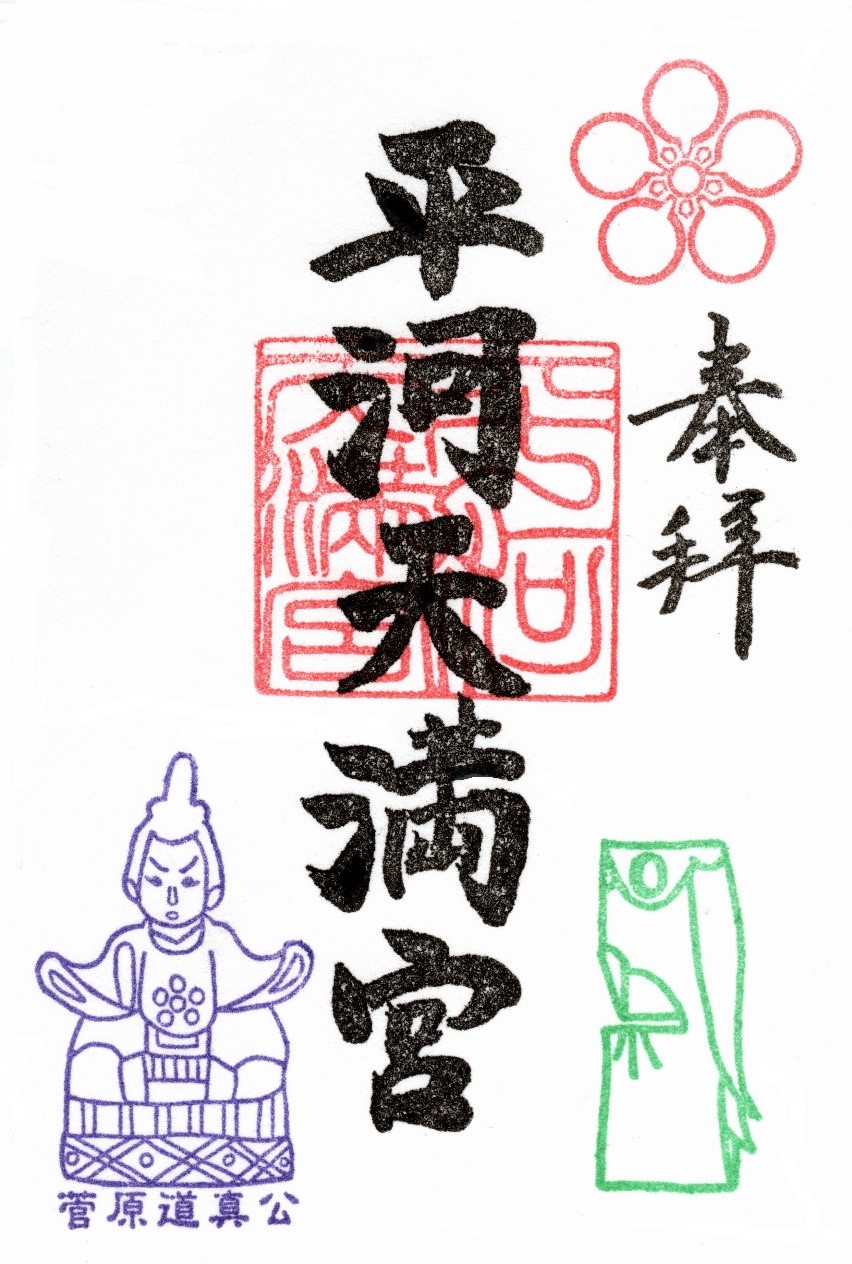 奉拝
平河天満宮
菅原道真公